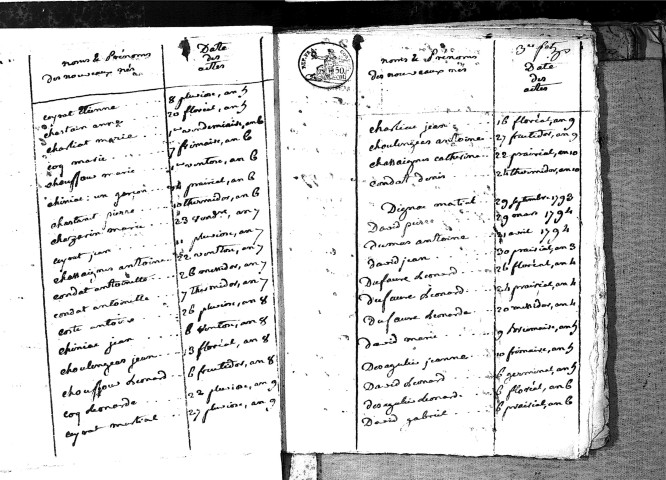 noms & Prénoms
des nouveaux nés
Date
des
actes
ceyrat Etienne 8 pluviose, an 5
chastain anne 20 floréal, an 5
chastiat marie 1er vendemiaire, an 6
coq marie 7 frimaire, an 6
chouffour marie 1er ventose, an 6
chiniac un garçon 24 prairial, an 6
chastanet pierre 10 thermidor, an 6
chazarin marie 23 vendre, an 7
ceyrat jean 11 pluviose, an 7
chassaignes antoine 22 ventose, an 7
condat antoinette 26 messidor, an 7
condat antoinette 7 thermidor, an 7
coste antoine 26 pluviose, an 8
chiniac jean 8 ventose, an 8
choulongeas jean 13 floréal, an 8
chouffour Léonard 6 fructidor, an 8
coq Léonarde 22 pluviose, an 9
ceyrat martial 27 pluviose, an 9
3me f
noms & Prénoms
des nouveaux nés
Date
des
actes
chastiau jean 16 floréal, an 9
choulongeas antoine 27 fructidor, an 9
chassaignes catherine 22 prairial, an 10
condat denis 24 thermidor, an 10
Dignac martial 29 septembre 1793
David pierre 29 mars 1794
Dumas antoine 21 avril 1794
David jean 30 prairial, an 3
Dufaure Léonard 26 floréal, an 4
Dufaure Léonard 24 prairial, an 4
Dufaure Léonarde 20 messidor, an 4
David marie 9 brimaire, an 5
Desagulie jeanne 10 frimaire, an 5
David Léonard 6 germinal, an 5
desagulie Léonard 6 floréal, an 6
David gabriel 6 prairial, an 6